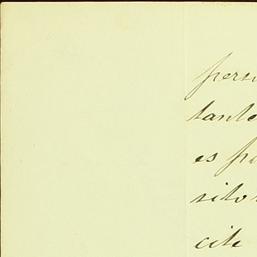 pers
tanto
es p
sito
cite